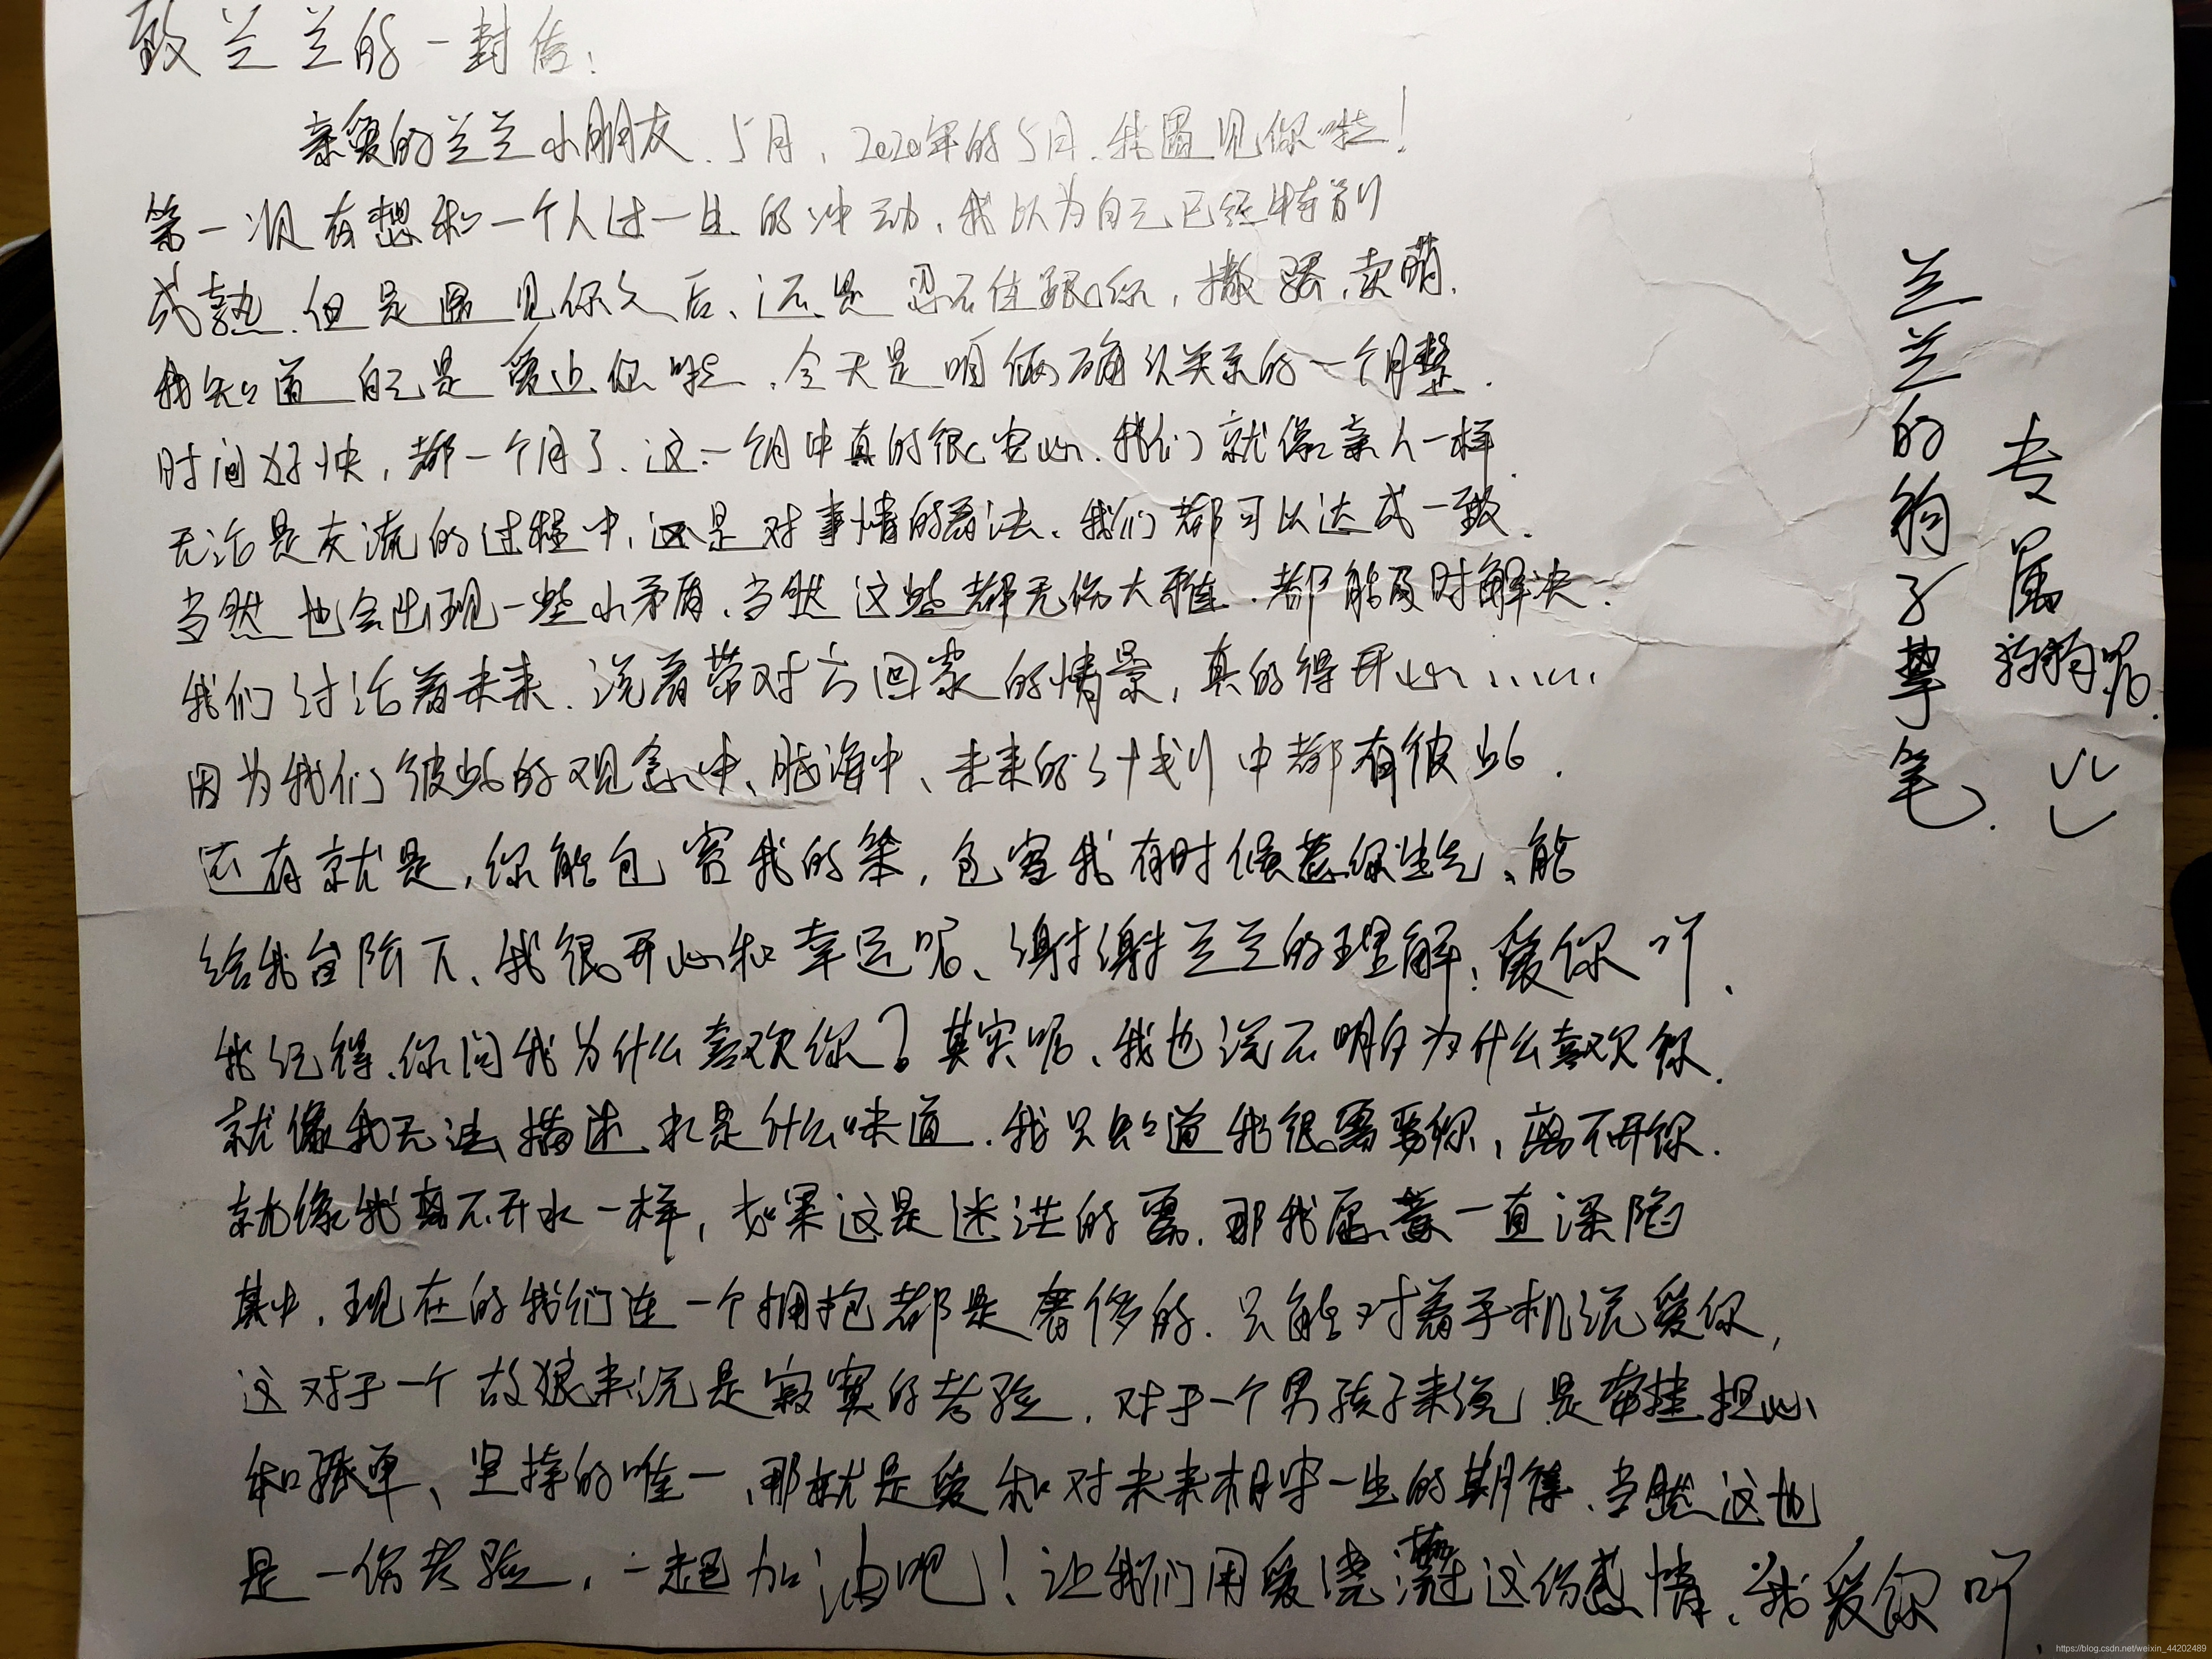 致兰兰的一封信:
亲爱的兰兰小朋友、5月，2020年的5月、我遇见你啦!
第一次有想和一个人过一生的冲动、我以为自己已经特别
成熟、但是遇见你之后、还是忍不住跟你，撒娇、卖萌、
我知道自己是爱上你啦、今天是咱俩确认关系的一个月整、
时间好快，都一个月了、这一个月中真的很安心、我们就像亲人一样、
无论是交流的过程中、还是对事情的看法、我们都可以达成一致、
当然也会出现一些小矛盾、当然这些都无伤大雅、都能及时解决、
我们讨论着未来、说着带对方回家的情景，真的得开心......
因为我们彼此的观念中、脑海中、未来的计划中都有彼此、
还有就是，你能包容我的笨，包容我有时候惹你生气、能
给我台阶下、我很开心和幸运呢、谢谢兰兰的理解；爱你吖、
我记得、你问我为什么喜欢你？其实呢、我也说不明白为什么喜欢你、
就像我无法描述水是什么味道、我只知道我很需要你，离不开你、
就像我离不开水一样，如果这是迷茫的雾、那我愿意一直深陷
其中、现在的我们连一个拥抱都是奢侈的、只能对着手机说爱你，
这对于一个故狼来说是寂寞的考验、对于一个男孩子来说是牵挂担心
和孤单、坚持的唯一、那就是爱和对未来相守一生的期待、当然这也
是一份考验，一起加油吧!让我们用爱浇灌这份感情、我爱你吖、
兰兰的狗子挚笔、
专属狗狗呢、
https://blog.csdn.net/weixin_44202489